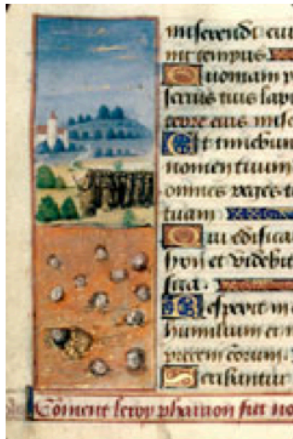 miserendi eiu
nit tempus
Quoniam p
seruis tuis lapi
terre eius mise
Et timebun
nomen tuum
omnes reges te
tuam
Qui edifica
syon et videbit
sua.
Respexit in
humilium et n
precem eorum.
Scribantur
Coment le roy pharaon fut no